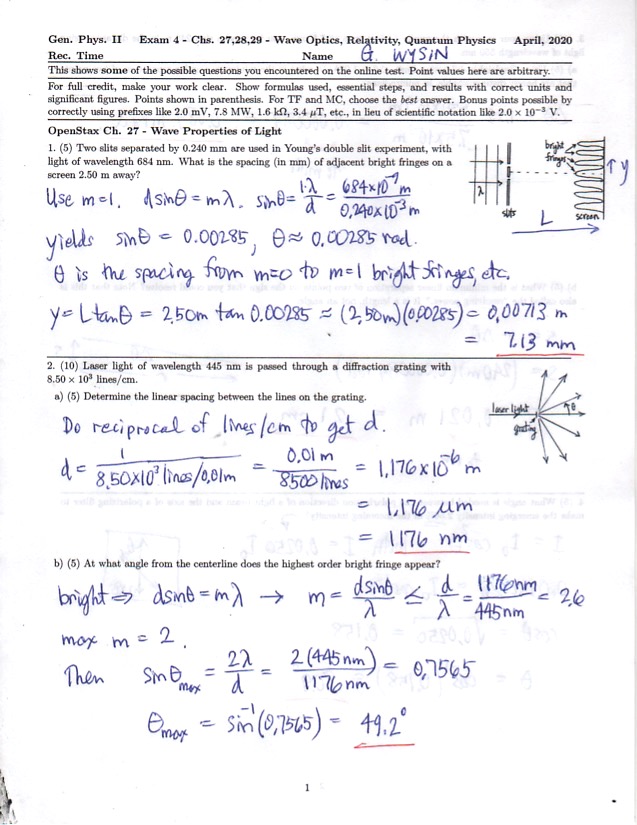 Gen. Phys. II Exam 4 - Chs. 27,28,29 - Wave Optics, Relativity, Quantum Physics April, 2020
Rec. Time Name G. WYSIN
This shows some of the possible questions you encountered on the online test. Point values here are arbitrary.
For full credit, make your work clear. Show formulas used, essential steps, and results with correct units and
significant figures. Points shown in parenthesis. For TF and MC, choose the best answer. Bonus points possible by
correctly using prefixes like 2.0 mV, 7.8 MW, 1.6 kΩ, 3.4 μT, etc., in lieu of scientific notation like 2.0 × 10⁻³ V.
OpenStax Ch. 27 - Wave Properties of Light
1. (5) Two slits separated by 0.240 mm are used in Young's double slit experiment, with
light of wavelength 684 nm. What is the spacing (in mm) of adjacent bright fringes on a
screen 2.50 m away?
bright fringes
y
λ
slits
screen
L
Use m=1. dsinθ = mλ. sinθ = 1·λ/d = 684×10⁻⁹ m / 0.240×10⁻³ m
yields sinθ = 0.00285, θ ≈ 0.00285 rad.
θ is the spacing from m=0 to m=1 bright fringes, etc.
y = L tanθ = 2.50m tan 0.00285 ≈ (2.50m)(0.00285) = 0.00713 m
= 7.13 mm
2. (10) Laser light of wavelength 445 nm is passed through a diffraction grating with
8.50 × 10³ lines/cm.
a) (5) Determine the linear spacing between the lines on the grating.
laser light
grating
θ
Do reciprocal of lines/cm to get d.
d = 1 / 8.50×10³ lines/0.01m = 0.01 m / 8500 lines = 1.176×10⁻⁶ m
= 1.176 μm
= 1176 nm
b) (5) At what angle from the centerline does the highest order bright fringe appear?
bright ⇒ dsinθ = mλ → m = dsinθ/λ ≤ d/λ = 1176nm/445nm = 2.6
max m = 2.
Then sinθmax = 2λ/d = 2(445 nm)/1176 nm = 0.7565
θmax = sin⁻¹(0.7565) = 49.2°
1